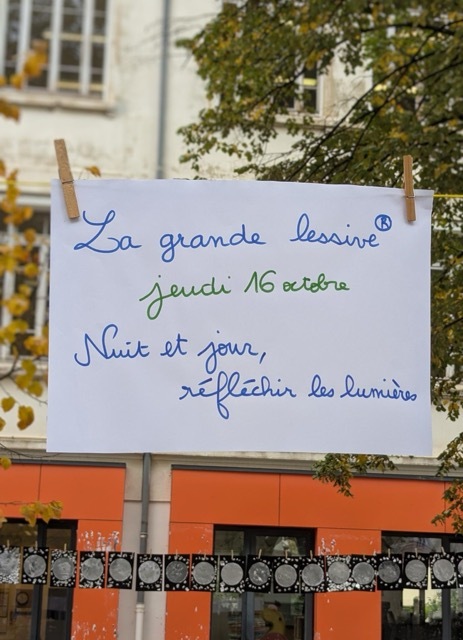 La grande lessive®
jeudi 16 octobre
Nuit et jour,
réfléchir les lumières